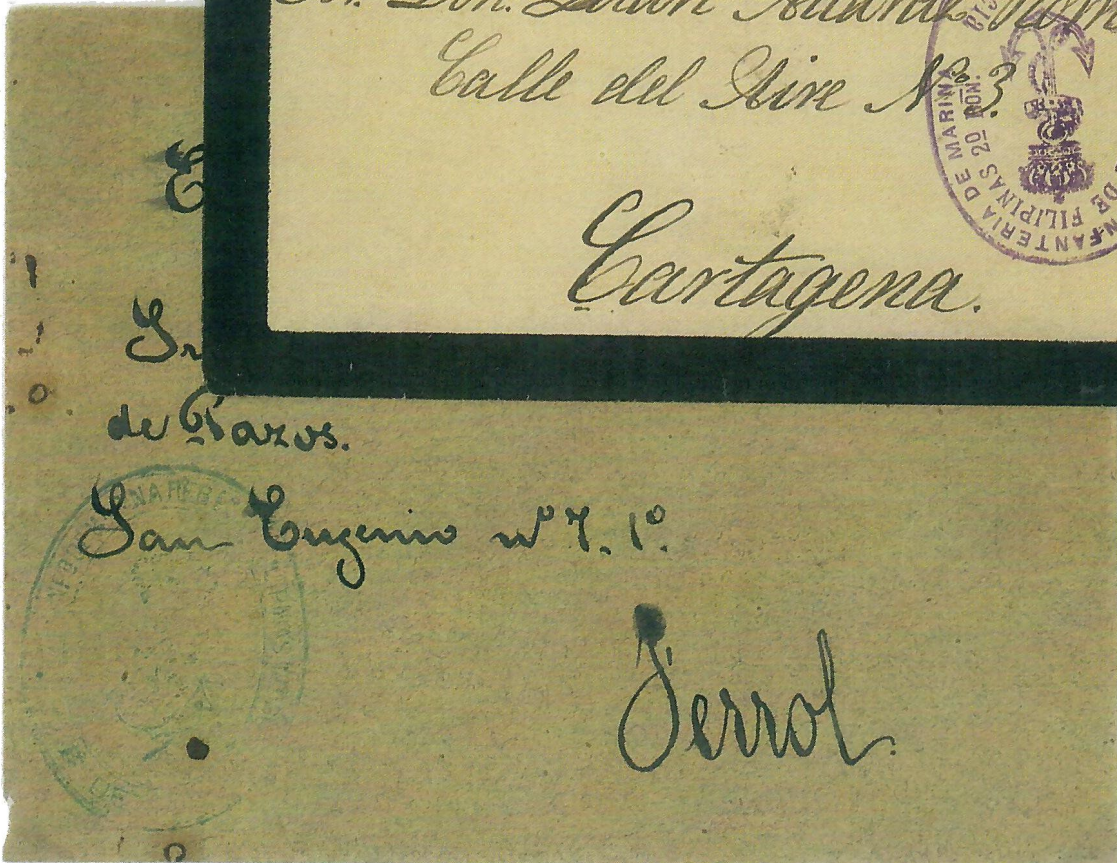 Sr. Don. Juan
Calle del Aire Nº 3
Cartagena.
INFANTERIA DE MARINA
DE FILIPINAS 2º BÓN.
E
Sr
de Pazos.
San Eugenio nº 7. 1º.
Ferrol.